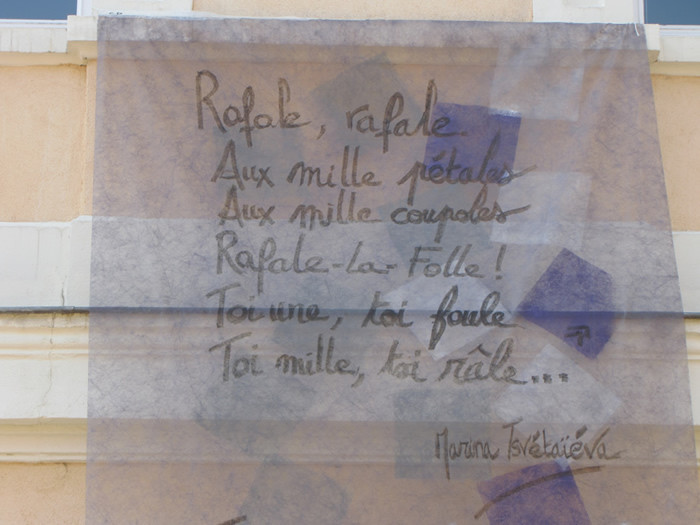 Rafale, rafale
Aux mille pétales
Aux mille coupoles
Rafale-La-Folle !
Toi une, toi foule
Toi mille, toi râle...
Marina Tsvétaïéva